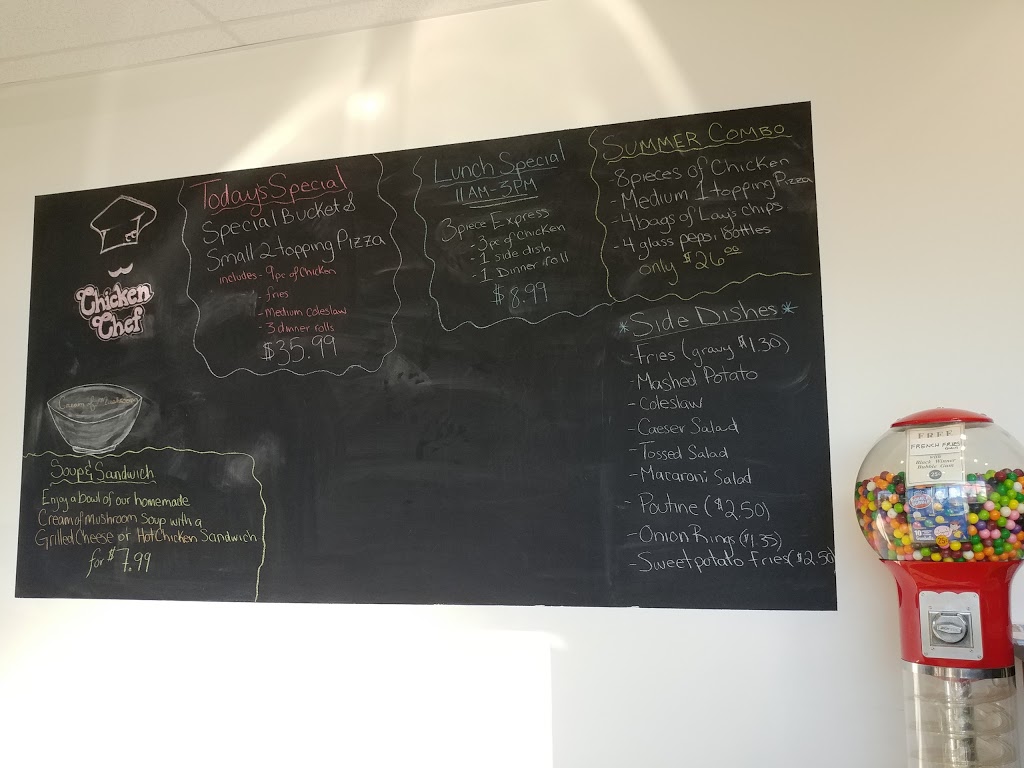 Chicken
Chef
Cream of Mushroom
Soup & Sandwich
Enjoy a bowl of our homemade
Cream of mushroom Soup with a
Grilled Cheese or Hot Chicken Sandwich
for $7.99
Today's Special
Special Bucket &
Small 2 topping Pizza
includes - 9pc of chicken
- fries
- Medium coleslaw
- 3 dinner rolls
$35.99
Lunch Special
11AM-3PM
3 piece Express
- 3pc of chicken
- 1 side dish
- 1 Dinner roll
$8.99
SUMMER COMBO
8 pieces of Chicken
- Medium 1 topping Pizza
- 4 bags of Lay's chips
- 4 glass pepsi bottles
only $26.00
*Side Dishes*
- Fries (gravy $1.30)
- Mashed Potato
- Coleslaw
- Caeser Salad
- Tossed Salad
- Macaroni Salad
- Poutine ($2.50)
- Onion Rings ($1.35)
- Sweet potato fries ($2.50)
FREE
FRENCH FRIES
with
Black Winner
Bubble Gum
25¢